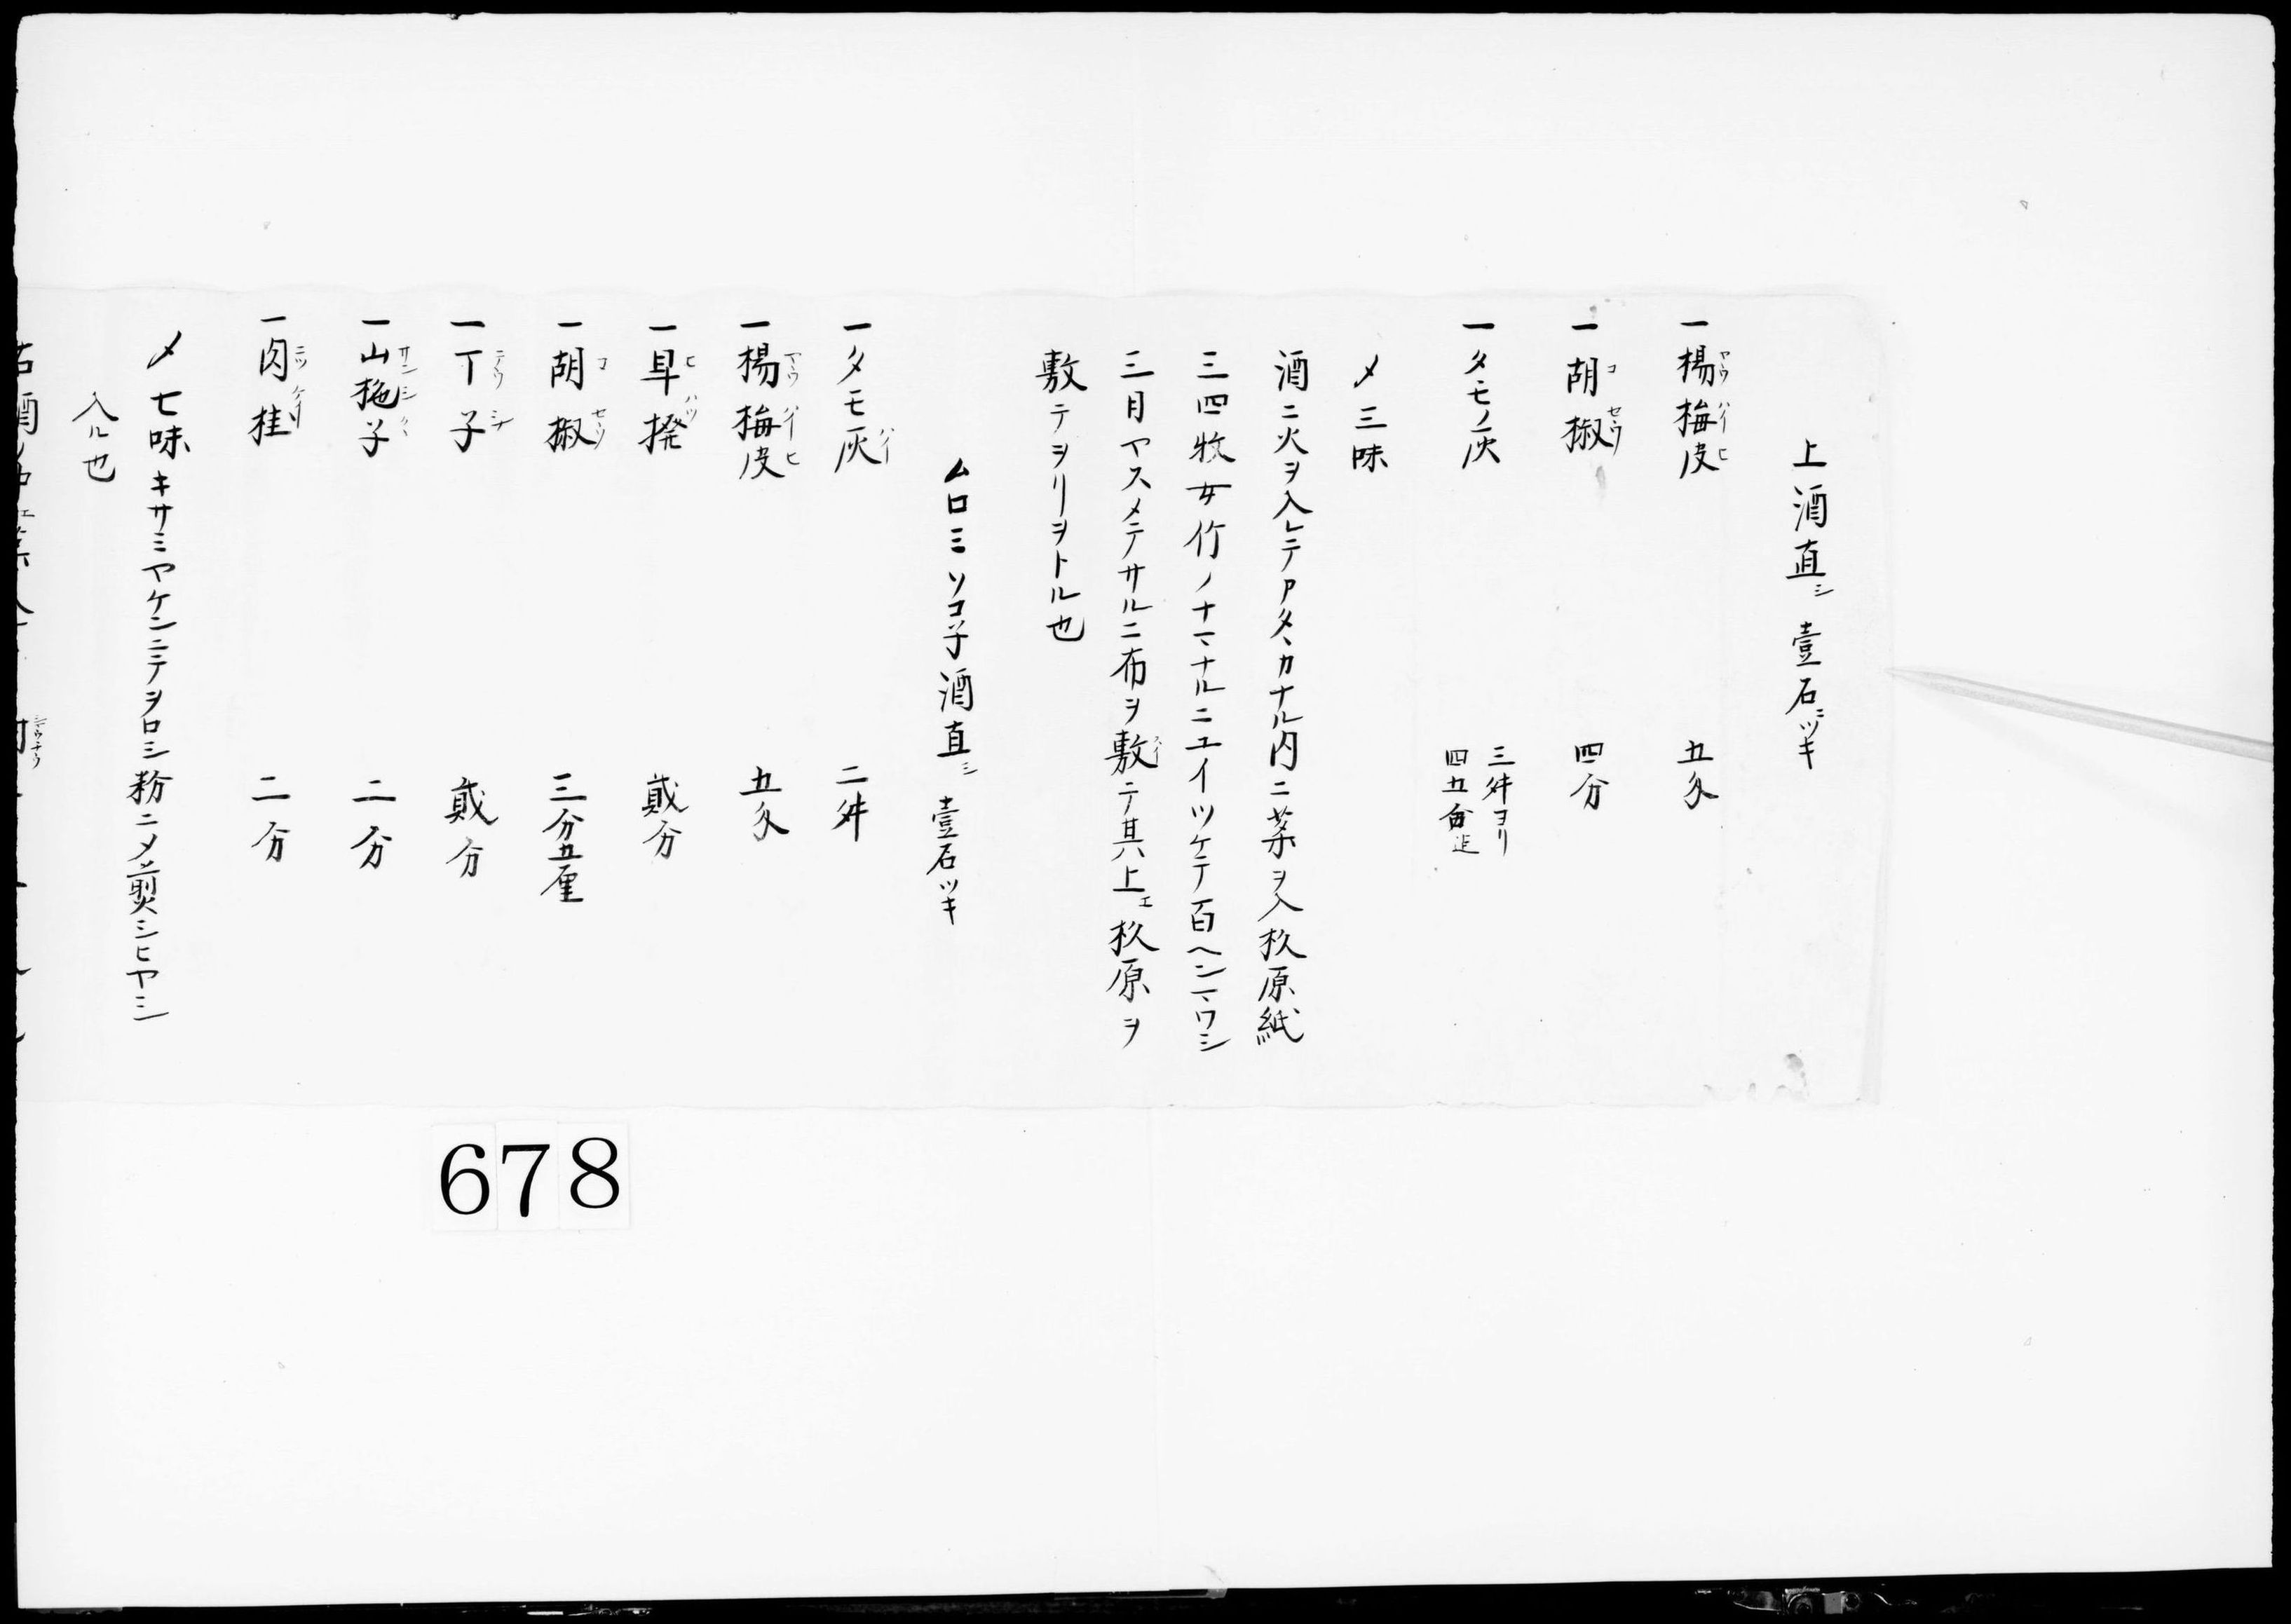 上酒直シ 壹石ニツキ
一楊梅皮 五匁
一胡椒 四分
一タモノ灰 三舛ヨリ
四五舛迄
〆三味
酒ニ火ヲ入レテアタヽカナル内ニ薬ヲ入杉原紙
三四牧女竹ノナマナルニユイツケテ百ヘンマワシ
三日ヤスメテサルニ布ヲ敷テ其上エ杉原ヲ
敷テヲリヲトル也
ムロミソコ子酒直シ 壹石ツキ
一タモ灰 二舛
一楊梅皮 五匁
一畢撥 貳分
一胡椒 三分五厘
一丁子 貳分
一山梔子 二分
一肉桂 二分
〆七味キサミヤケンニテヲロシ粉ニメ煎シヒヤシ
入ル也
678